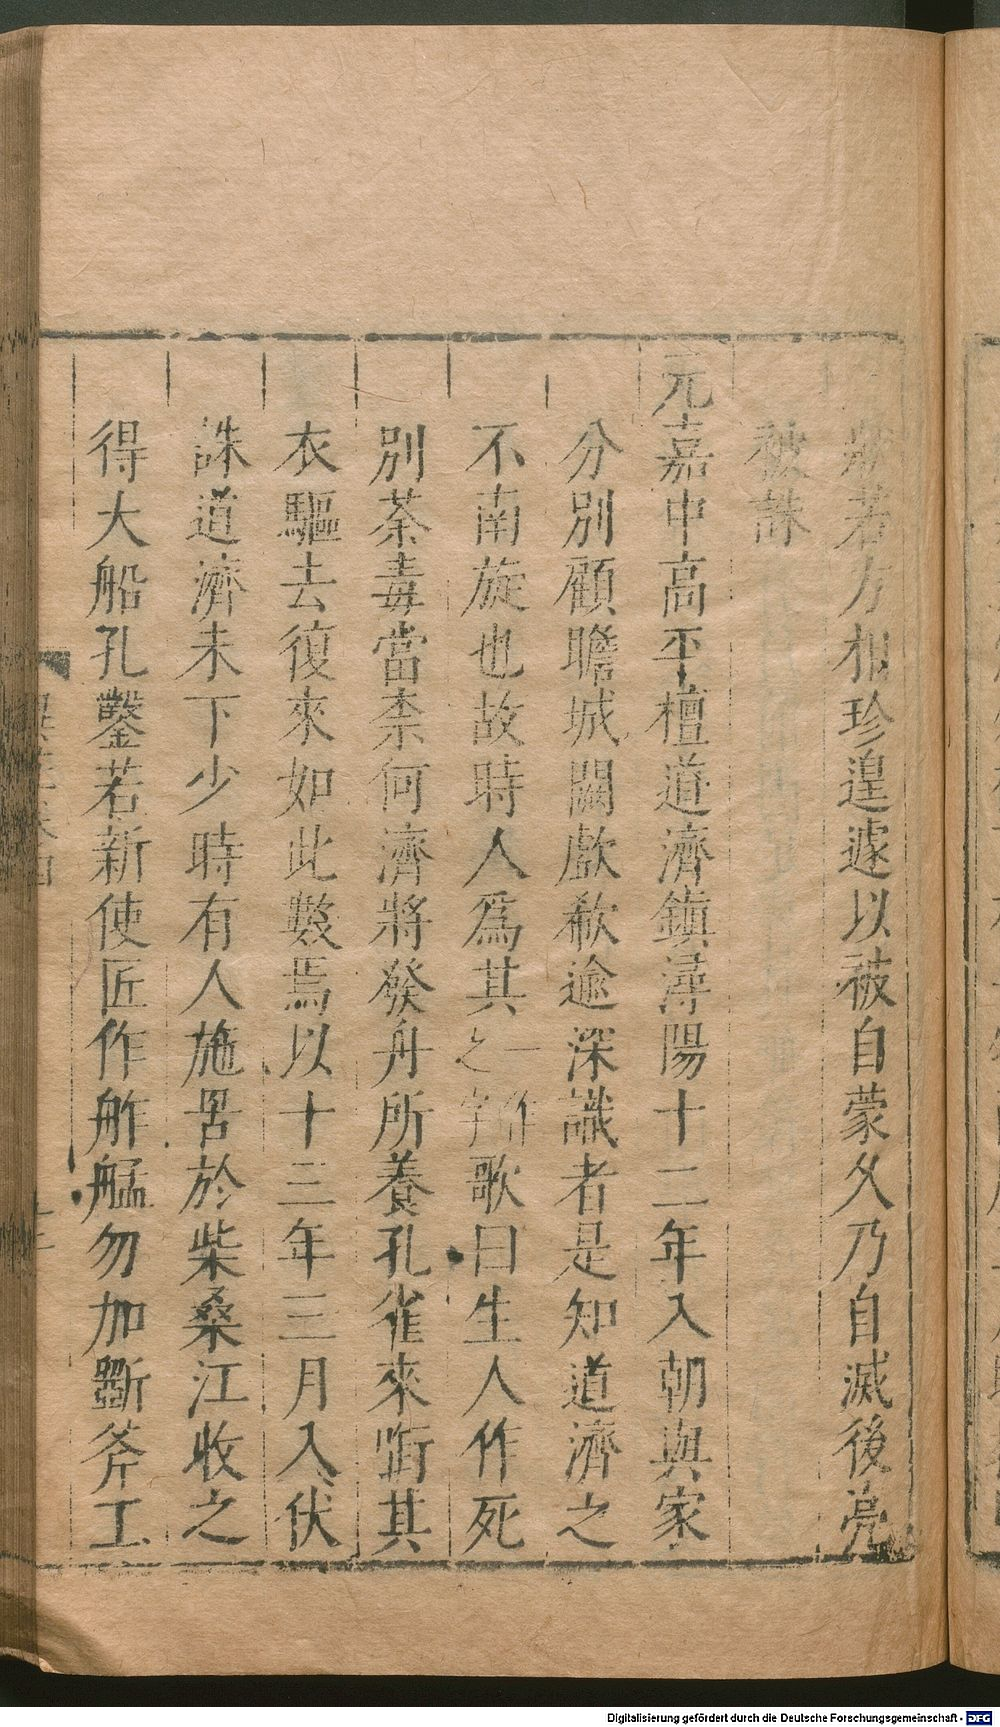 狀若方相珍遑遽以被自蒙久乃自滅後亮
被誅
元嘉中高平檀道濟鎮潯陽十二年入朝與家
分別顧瞻城闕歔欷逾深識者是知道濟之
不南旋也故時人爲其一作之字歌曰生人作死
別荼毒當柰何濟將發舟所養孔雀來銜其
衣驅去復來如此數焉以十三年三月入伏
誅道濟未下少時有人施罟於柴桑江收之
得大船孔鑿若新使匠作舴艋勿加斵斧工
Digitalisierung gefördert durch die Deutsche Forschungsgemeinschaft - DFG